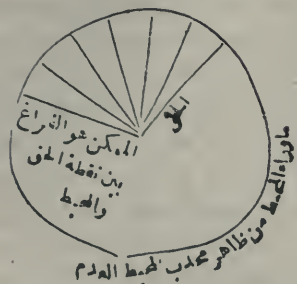 الحق
الممكن هو الفراغ
بين نقطة الحق
والمحيط
ما وراء المحيط من ظاهر محدب لمحيط العدم